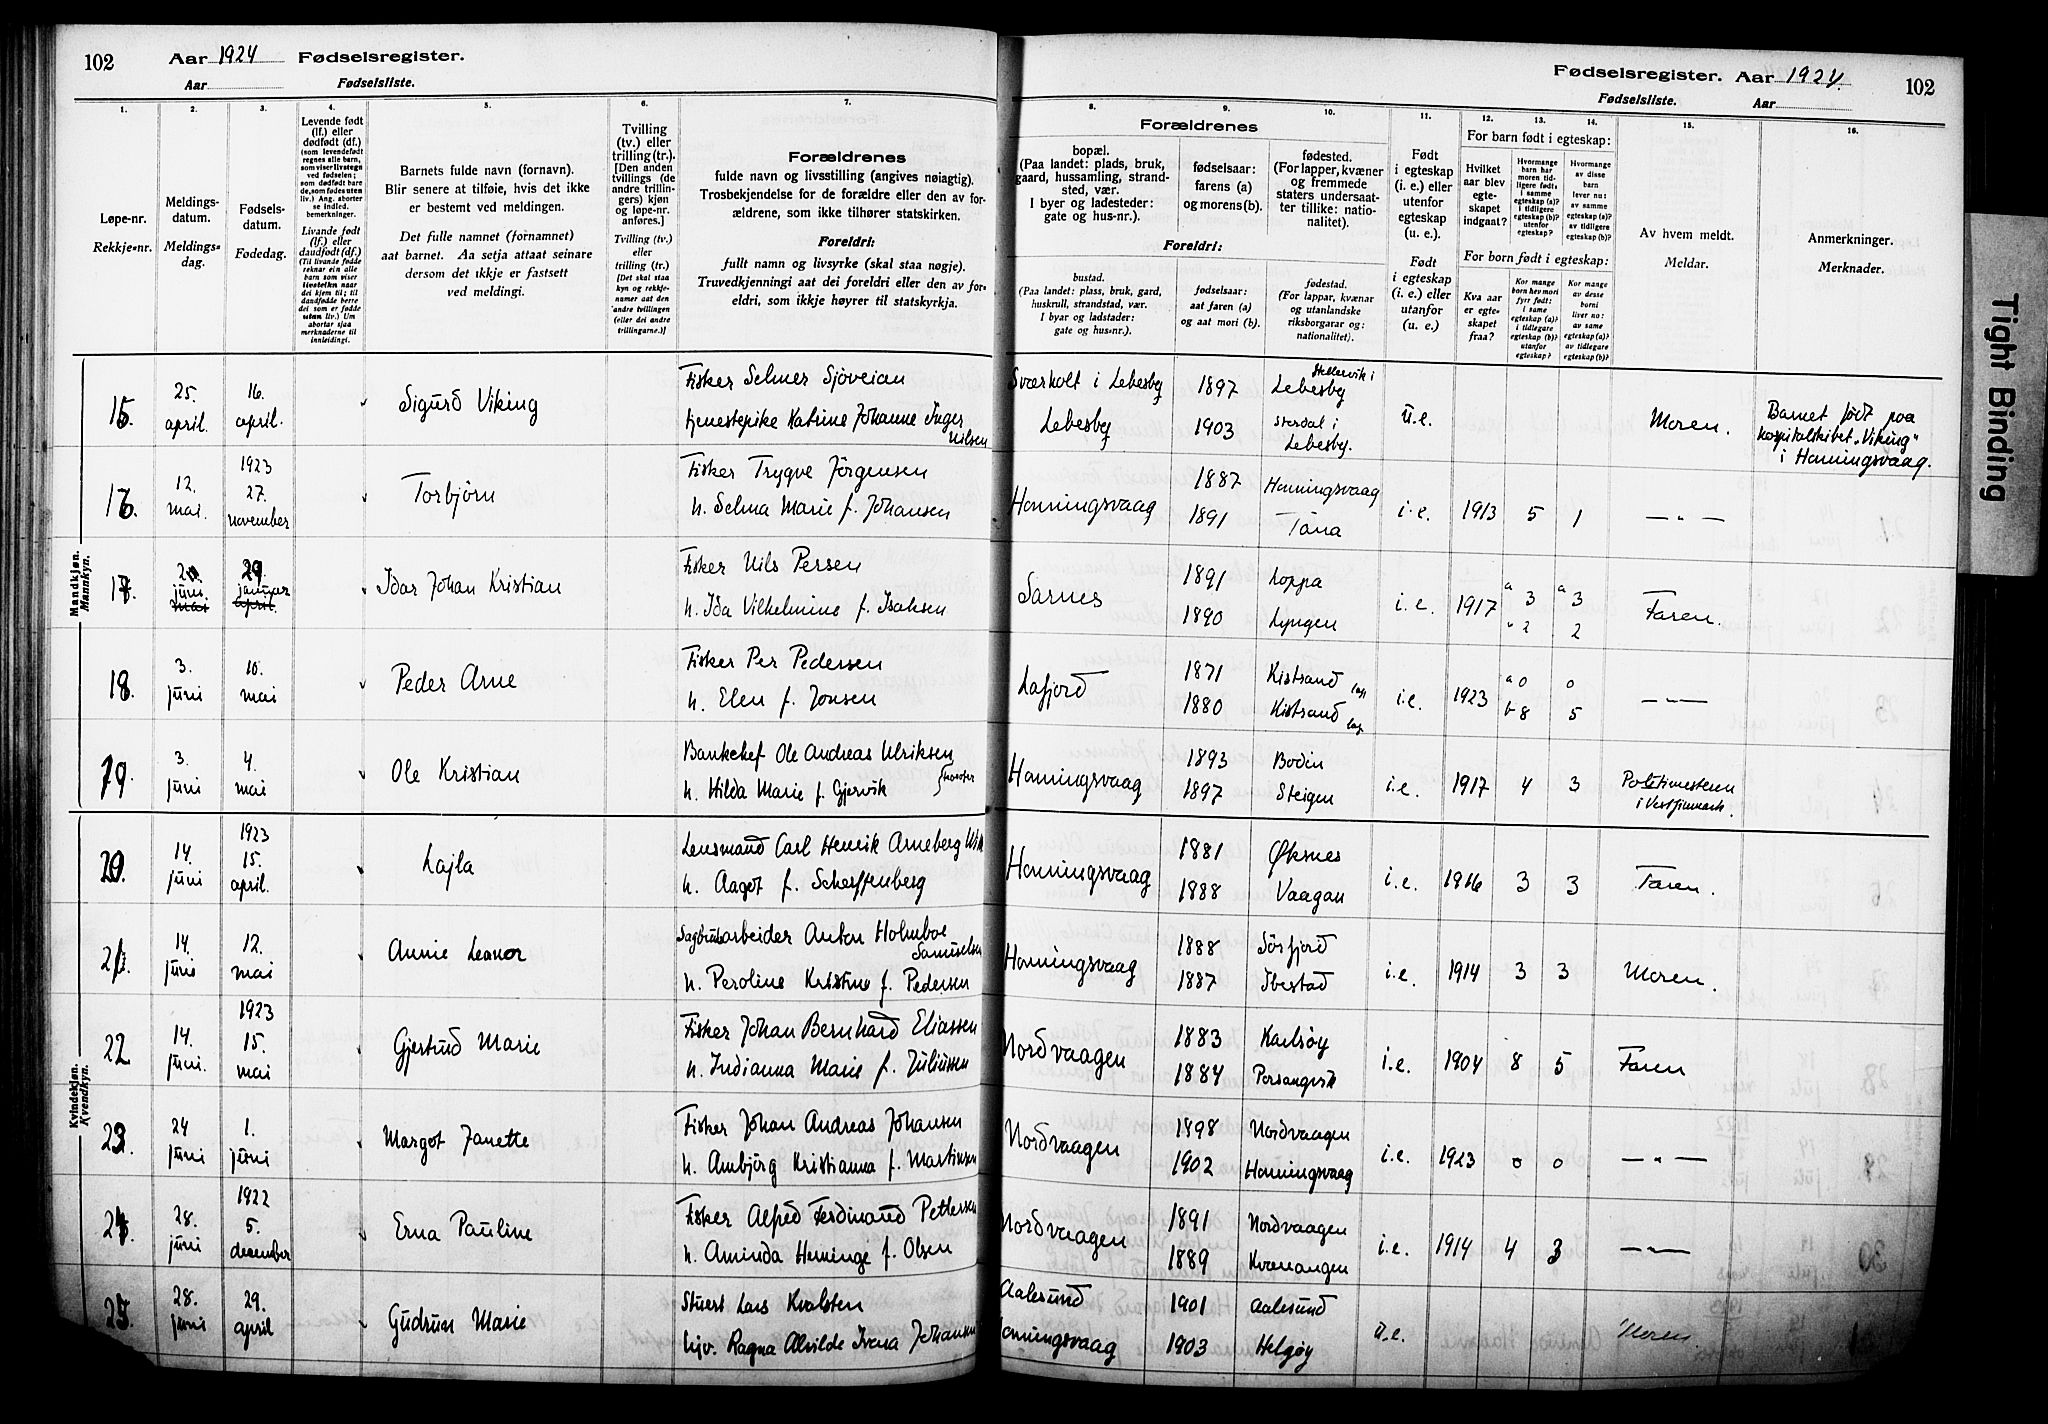 102 Aar 1924 Fødselsregister.
Aar Fødselsliste.
Fødselsregister. Aar 1924. 102
Fødselsliste. Aar
1. 2. 3. 4. 5. 6. 7. 8. 9. 10. 11. 12. 13. 14. 15. 16.
Løpe-nr.
Rekkje-nr.
Meldings-
datum.
Meldings-
dag.
Fødsels-
datum.
Fødedag.
Levende født
(lf.) eller
dødfødt (df.)
(som levendefødt
regnes alle barn,
som viser livstegn
ved fødselen;
som dødfødt bare
de, som fødes uten
liv.) Ang. aborter
se indled.
bemerkninger.
Livande født
(lf.) eller
daudfødt (df.)
(Til livande fødde
reknar ein alle
barn som viser
livsteikn naar
dei kjem til; til
daudfødde berre
dei som er fødde
utan liv.) Um
abortar sjaa
merknaderne til
innleidingi.
Barnets fulde navn (fornavn).
Blir senere at tilføie, hvis det ikke
er bestemt ved meldingen.
Det fulle namnet (fornamnet)
aat barnet. Aa setja attaat seinare
dersom det ikkje er fastsett
ved meldingi.
Tvilling
(tv.) eller
trilling (tr.).
[Den anden
tvillings (de
andre trillin-
gers) kjøn
og løpe-nr.
anføres.]
Tvilling (tv.)
eller
trilling (tr.)
[Det skal staa
kyn og rekkje-
numer aat den
andre tvillingen
(eller dei andre
trillingarne.)]
Forældrenes
fulde navn og livsstilling (angives nøiagtig).
Trosbekjendelse for de forældre eller den av for-
ældrene, som ikke tilhører statskirken.
Foreldri:
fullt namn og livsyrke (skal staa nøgje).
Truvedkjenningi aat dei foreldri eller den av for-
eldri, som ikkje høyrer til statskyrkja.
Forældrenes
bopæl.
(Paa landet: plads, bruk,
gaard, hussamling, strand-
sted, vær.
I byer og ladesteder:
gate og hus-nr.).
fødselsaar:
farens (a)
og morens (b).
fødested.
(For lapper, kvæner
og fremmede
staters undersaat-
ter tillike: natio-
nalitet).
Foreldri:
bustad.
(Paa landet: plass, bruk, gard,
huskrull, strandstad, vær.
I byar og ladstader:
gate og hus-nr.).
fødselsaar:
aat faren (a)
og aat mori (b).
fødestad.
(For lappar, kvænar
og utanlandske
riksborgarar og:
nationalitet).
Født
i egteskap
(i. e.) eller
utenfor
egteskap
(u. e.).
Født
i egteskap
(i. e.) eller
utanfor
(u. e.).
For barn født i egteskap:
Hvilket
aar blev
egte-
skapet
indgaat?
Hvormange
barn har
moren tid-
ligere født:
i samme
egteskap (a)?
i tidligere
egteskap (b)?
utenfor
egteskap?
Hvormange
av disse
barn
lever nu:
av samme
egteskap (a)?
av tidligere
egteskap (b)?
For born født i egteskap:
Kva aar
er egte-
skapet
fraa?
Kor mange
born hev mori
fyrr født:
i same
egteskap (a)?
i tidlegare
egteskap (b)?
utanfor
egteskap?
Kor mange
av desse
borni
liver no:
av same
egteskap (a)?
av tidlegare
egteskap (b)?
Av hvem meldt.
Meldar.
Anmerkninger.
Merknader.
Mandkjøn.
Mannkyn.
15. 25. april. 16. april. Sigurd Viking
Fisker Selmer Sjøveian
tjenestepike Katrine Johanne Inger Nilsen
Sværholt i Lebesby 1897 Lebesby
Lebesby 1903 i Lebesby.
u.e. Moren.
Barnet født paa
hospitalskibet „Viking"
i Honningsvaag.
16. 12. mai. 1923 27. november Torbjørn
Fisker Trygve Jörgensen
h. Selma Marie f. Johansen
Honningsvaag 1887 Honningsvaag
1891 Tana
i.e. 1913 5 1 — „ —
17. juni. mai 29. januar april. Idar Johan Kristian
Fisker Nils Persen
h. Ida Vilhelmine f. Isaksen
Sarnes 1891 Loppa
1890 Lyngen
i.e. 1917 a 3 a 3
" 2 2
Faren.
18. 3. juni 10. mai Peder Arne
Fisker Per Pedersen
h. Elen f. Jonsen
Lafjord 1871 Kistrand lap
1880 Kistrand lap
i.e. 1923 a 0 0
b 8 5
— „ —
19. 3. juni 4. mai Ole Kristian
Bankchef Ole Andreas Ulriksen
h. Hilda Marie f. Gjervik
Honningsvaag 1893 Bodin
1897 Steigen
i.e. 1917 4 3 Politimesteren
i Vestfinmark.
Kvindekjøn.
Kvendkyn.
20. 14. juni 1923 15. april. Lajla
Lensmand Carl Henrik Arneberg
h. Aagot f. Scharffenberg
Honningsvaag 1881 Øksnes
1888 Vaagan
i.e. 1916 3 3 Faren.
21. 14. juni 12. mai Annie Leanor
Sagbruksarbeider Anton Holmboe Samuelsen
h. Peroline Kristine f. Pedersen
Honningsvaag 1888 Sörfjord
1887 Ibestad
i.e. 1914 3 3 Moren.
22 14. juni. 1923 15. mai Gjertrud Marie
Fisker Johan Bernhard Eliassen
h. Indianna Marie f. Juliussen
Nordvaagen 1883 Karlsøy
1884 Porsangvik
i.e. 1904 8 5 Faren
23. 24 juni 1. juni Margot Janette
Fisker Johan Andreas Johansen
h. Ambjörg Kristianna f. Martinsen
Nordvaagen 1898 Nordvaagen
1902 Honningsvaag
i.e. 1923 0 0 — „ —
24. 28. juni 1922 5. december Erna Pauline
Fisker Alfred Ferdinand Pettersen
h. Aminda Heminge f. Olsen
Nordvaagen 1891 Nordvaagen
1889 Kvænangen
i.e. 1914 4 3 — „ —
25. 28. juni 29. april Gudrun Marie
Stuert Lars Kvalsten
hjv. Ragna Alvilde Ivana Johansen
Aalesund 1901 Aalesund
Honningsvaag 1903 Helgøy
u.e. Moren
Tight Binding